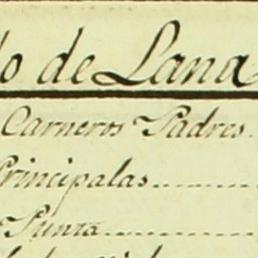 do de Lana
Carneros Padres.
Principalas..........
Punta...............